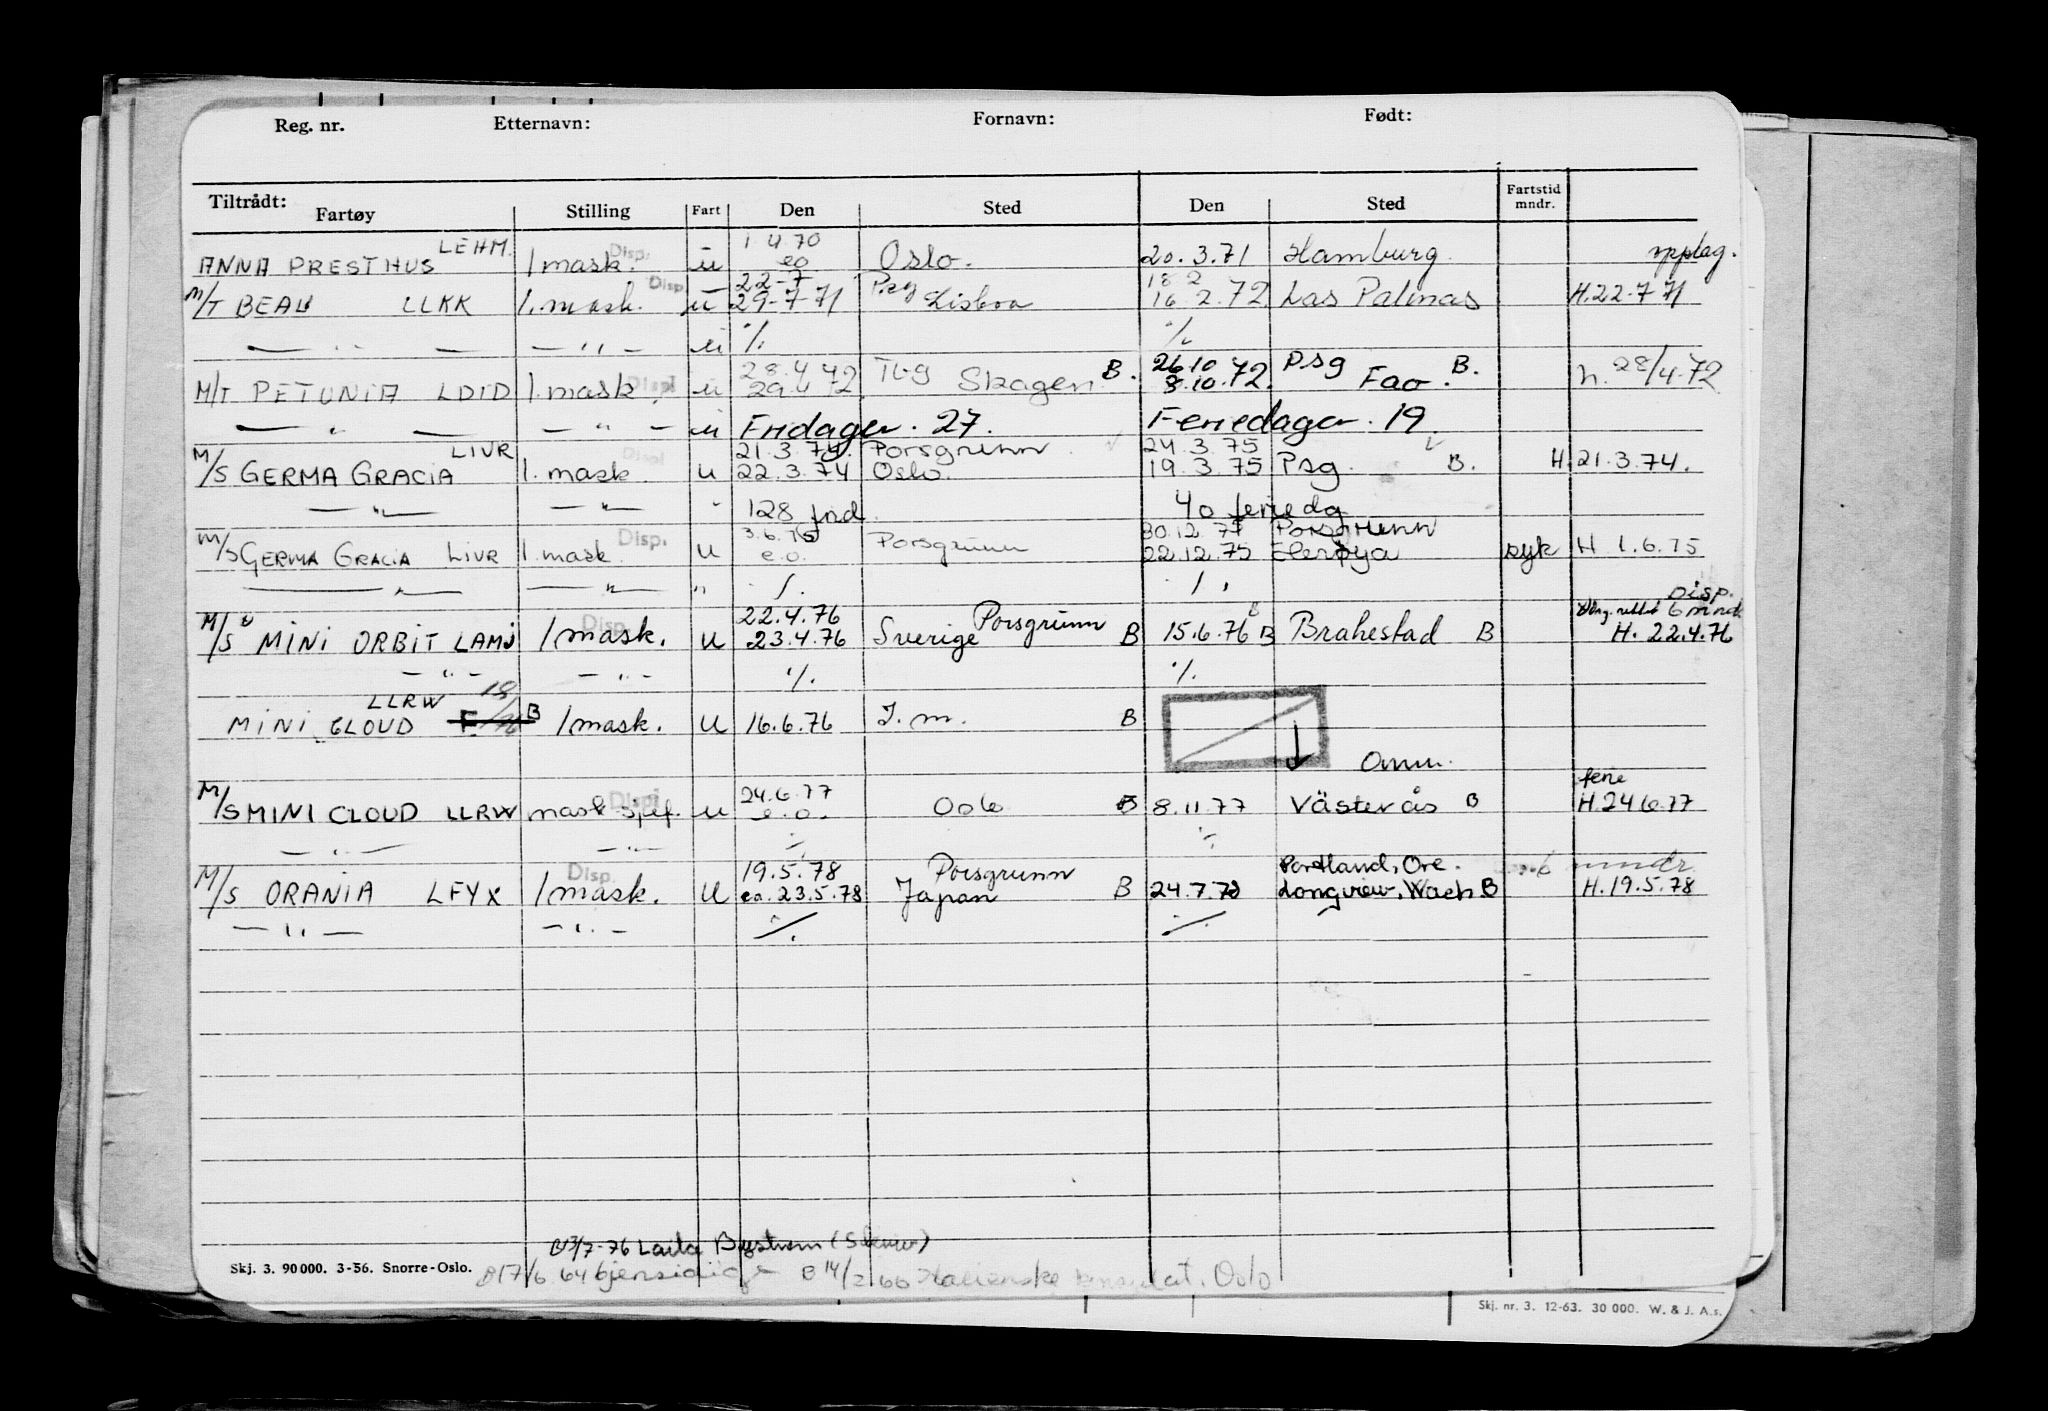 Reg. nr. Etternavn: Fornavn: Født:
Tiltrådt: Fartstid mndr.
Fartøy Stilling Fart Den Sted Den Sted
LEHM. Disp. 1 4.70
ANNA PRESTHUS 1 mask. u eo Oslo. 20.3.71 Hamburg. opplag.
Disp. 22-7 Psg 18 2
M/T BEAU LLKK 1. mask. u 29-7-71 Lisboa 16.2.72 Las Palmas H.22-7 71
— " — — " — u ./. ./.
28.4 72 Tbg B. 26.10 Psg B.
M/T PETUNIA LDID 1. mask. Disp! u 29.4 72 Skagen 8.10.72. Fao. h. 28/4.72
— " — — " — u Fridager. 27. Feriedager. 19.
LIVR Disp! 21.3.74. Porsgrunn 24.3.75
M/S GERMA GRACIA 1. mask u 22.3.74 Oslo. 19.3.75 Psg. B. H.21.3.74.
— " — — " — " 128 frid. 40 feriedg
Disp. 3.6.75 30.12.77 Porsgrunn
M/S GERMA GRACIA LIVR 1. mask. u e.o. Porsgrunn 22.12.75 syk H 1.6.75
— " — — " — " ./. ./.
Disp. 22.4.76 Porsgrunn Disp. 6 mnd
M/S MINI ORBIT LAMJ 1 mask. u 23.4.76 Sverige B 15.6.76 B Brahestad B H. 22.4.76
— " — — " — ./. ./.
LLRW
MINI CLOUD B 1 mask. u 16.6.76 I.m. B
Omm.
Disp! 24.6.77 ferie
M/S MINI CLOUD LLRW mask sjef. u e.o. Oslo B 8.11.77 Västerås B H.24.6.77
— " — — " — ./. ./.
Disp. 19.5.78 Porsgrunn Portland, Ore. 6 mndr
M/S ORANIA LFYX 1 mask. u ca. 23.5.78 Japan B 24.7.78 Longview, Wach B H.19.5.78
— " — — " — ./. ./.
7-76 Laila Bystrøm
Skj. 3. 90 000. 3-56. Snorre-Oslo. B 17/6 64 B 14/2 66 Italienske konsulat. Oslo
Skj. nr. 3. 12-63. 30 000. W. & J. A.s.